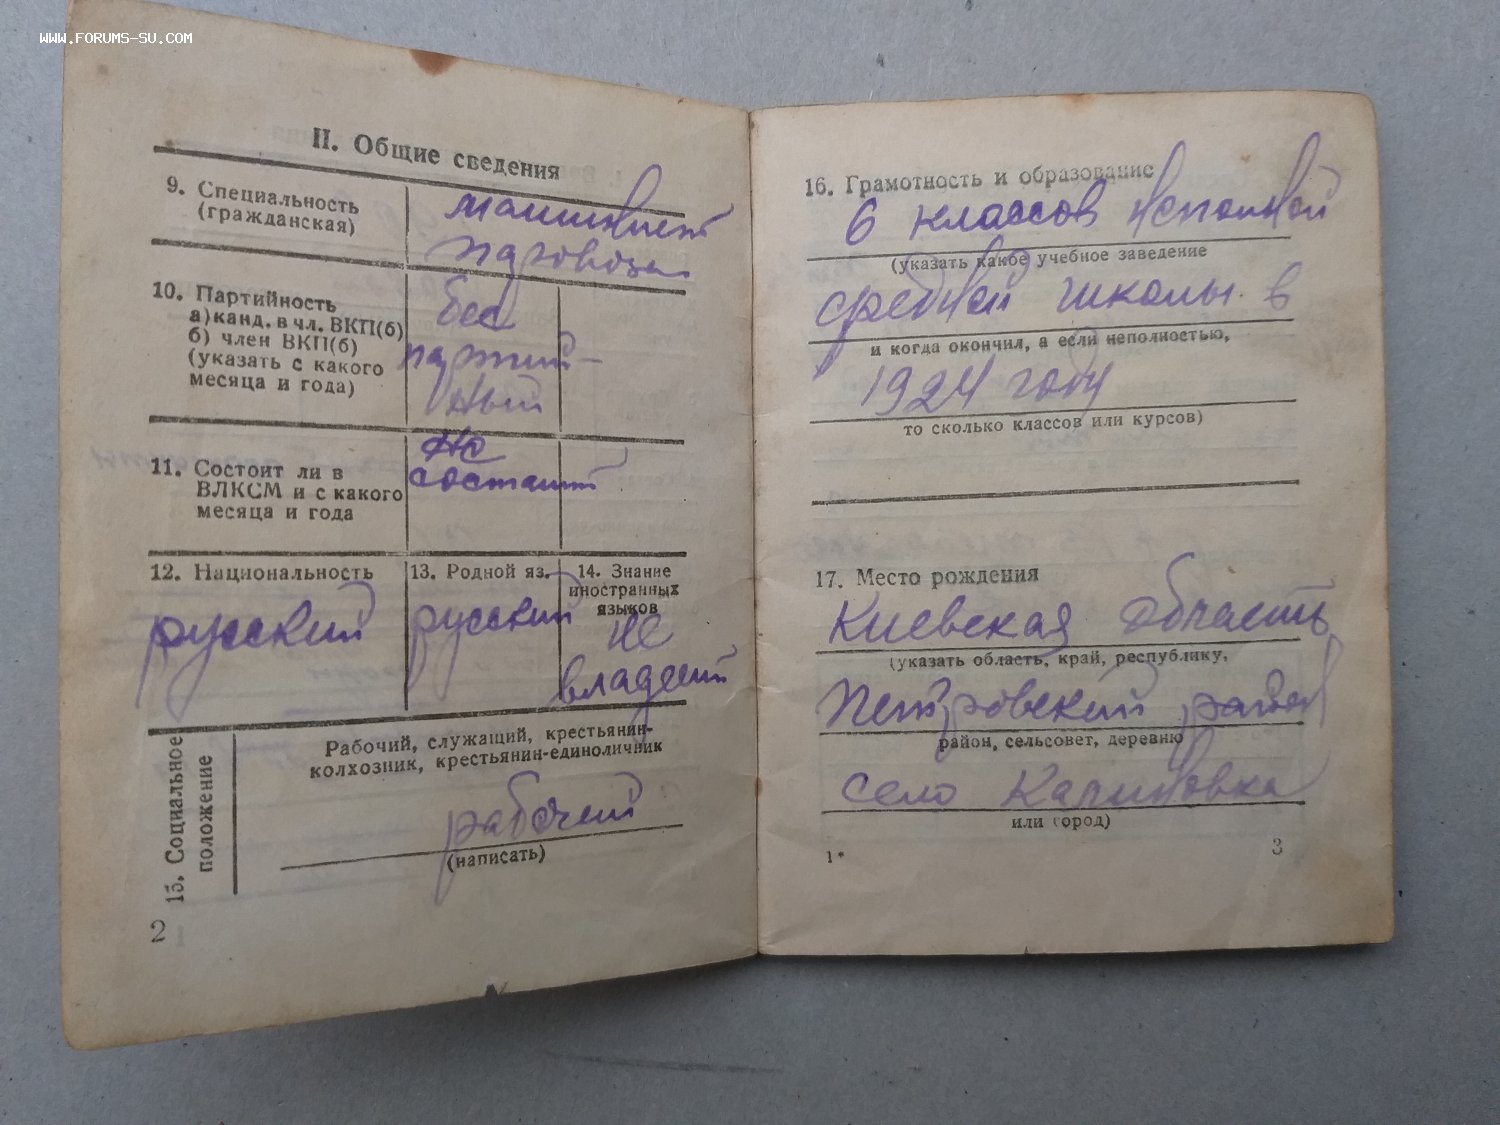 WWW.FORUMS-SU.COM
II. Общие сведения
9. Специальность
(гражданская)
машинист
паровоза
10. Партийность
а) канд. в чл. ВКП(б)
б) член ВКП(б)
(указать с какого
месяца и года)
бес
партий-
ный
11. Состоит ли в
ВЛКСМ и с какого
месяца и года
не
состоит
12. Национальность
русский
13. Родной яз.
русский
14. Знание
иностранных
языков
не
владеет
15. Социальное
положение
Рабочий, служащий, крестьянин-
колхозник, крестьянин-единоличник
рабочий
(написать)
2
16. Грамотность и образование
6 классов неполной
(указать какое учебное заведение
средней школы в
и когда окончил, а если неполностью,
1924 году
то сколько классов или курсов)
17. Место рождения
Киевская область
(указать область, край, республику,
Петровский район
район, сельсовет, деревню
село Калиновка
или город)
1*
3